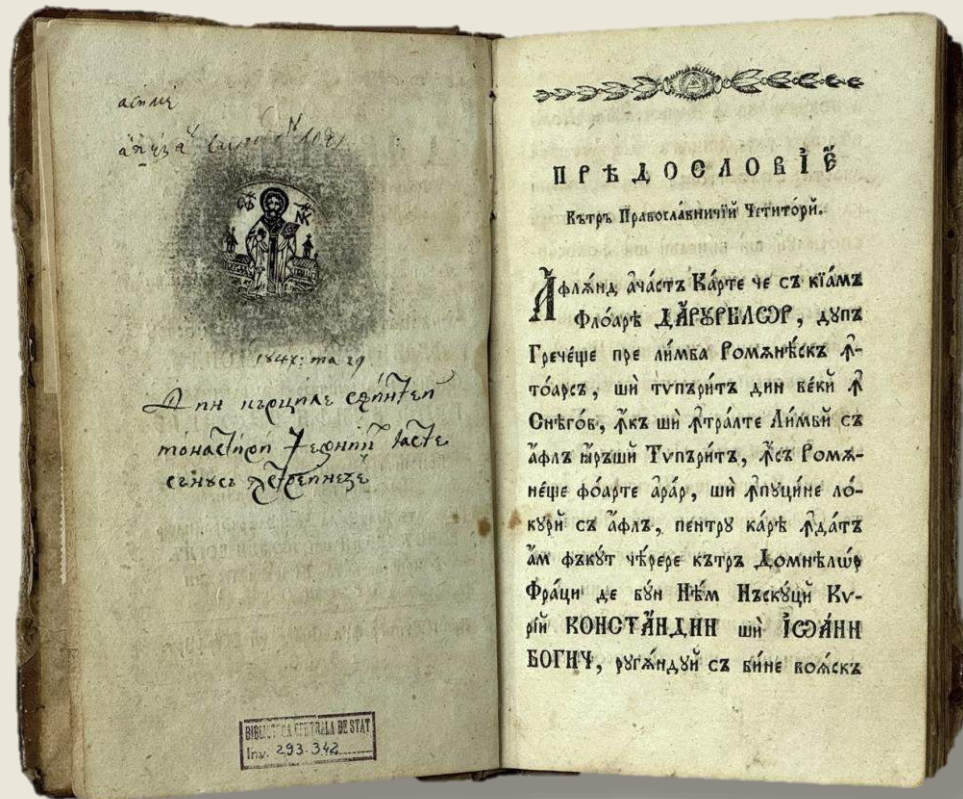 1847: ма 29
Дин кърциле сфинтей
монастири Чернїй ꙗсте
сънусъ ꙟстреинезе
BIBLIOTECA CENTRALA DE STAT
Inv. 293.342
ПРѢДОСЛОВІЕ
Кътръ Правосла́вничїй Чети́тори.
А҆флѫ́нд а҆ча́стъ Ка́рте че съ кїа́мъ
Флоа́рѣ ДА́РꙊРИЛѠР, дупъ
Грече́ще пре ли́мба Ромѫнѣ́скъ ꙟ-
тоа́рсъ, шѝ тѵпъри́тъ дин ве́кй ꙟ
Снѣго́в, ꙟкъ шѝ ꙟтра́лте Ли́мбй съ
а҆́флъ ꙗ҆ръшй Тѵпъри́тъ, ꙟсъ Ромѫ-
не́ще фоа́рте а҆ра́р, шѝ ꙟпуци́не ло́-
курй съ а҆́флъ, пентру ка́рѣ ꙟда́тъ
а҆м фъку́т че́рере кътръ Домнѣ́лѡр
Фра́ци де бу́н Нѣ́м Нъску́цй Кѵ-
рїй КОНСТА́НДИН шѝ ІѠА́НН
БОГИЧ, ругѫ́ндуй съ би́не воѧ́скъ